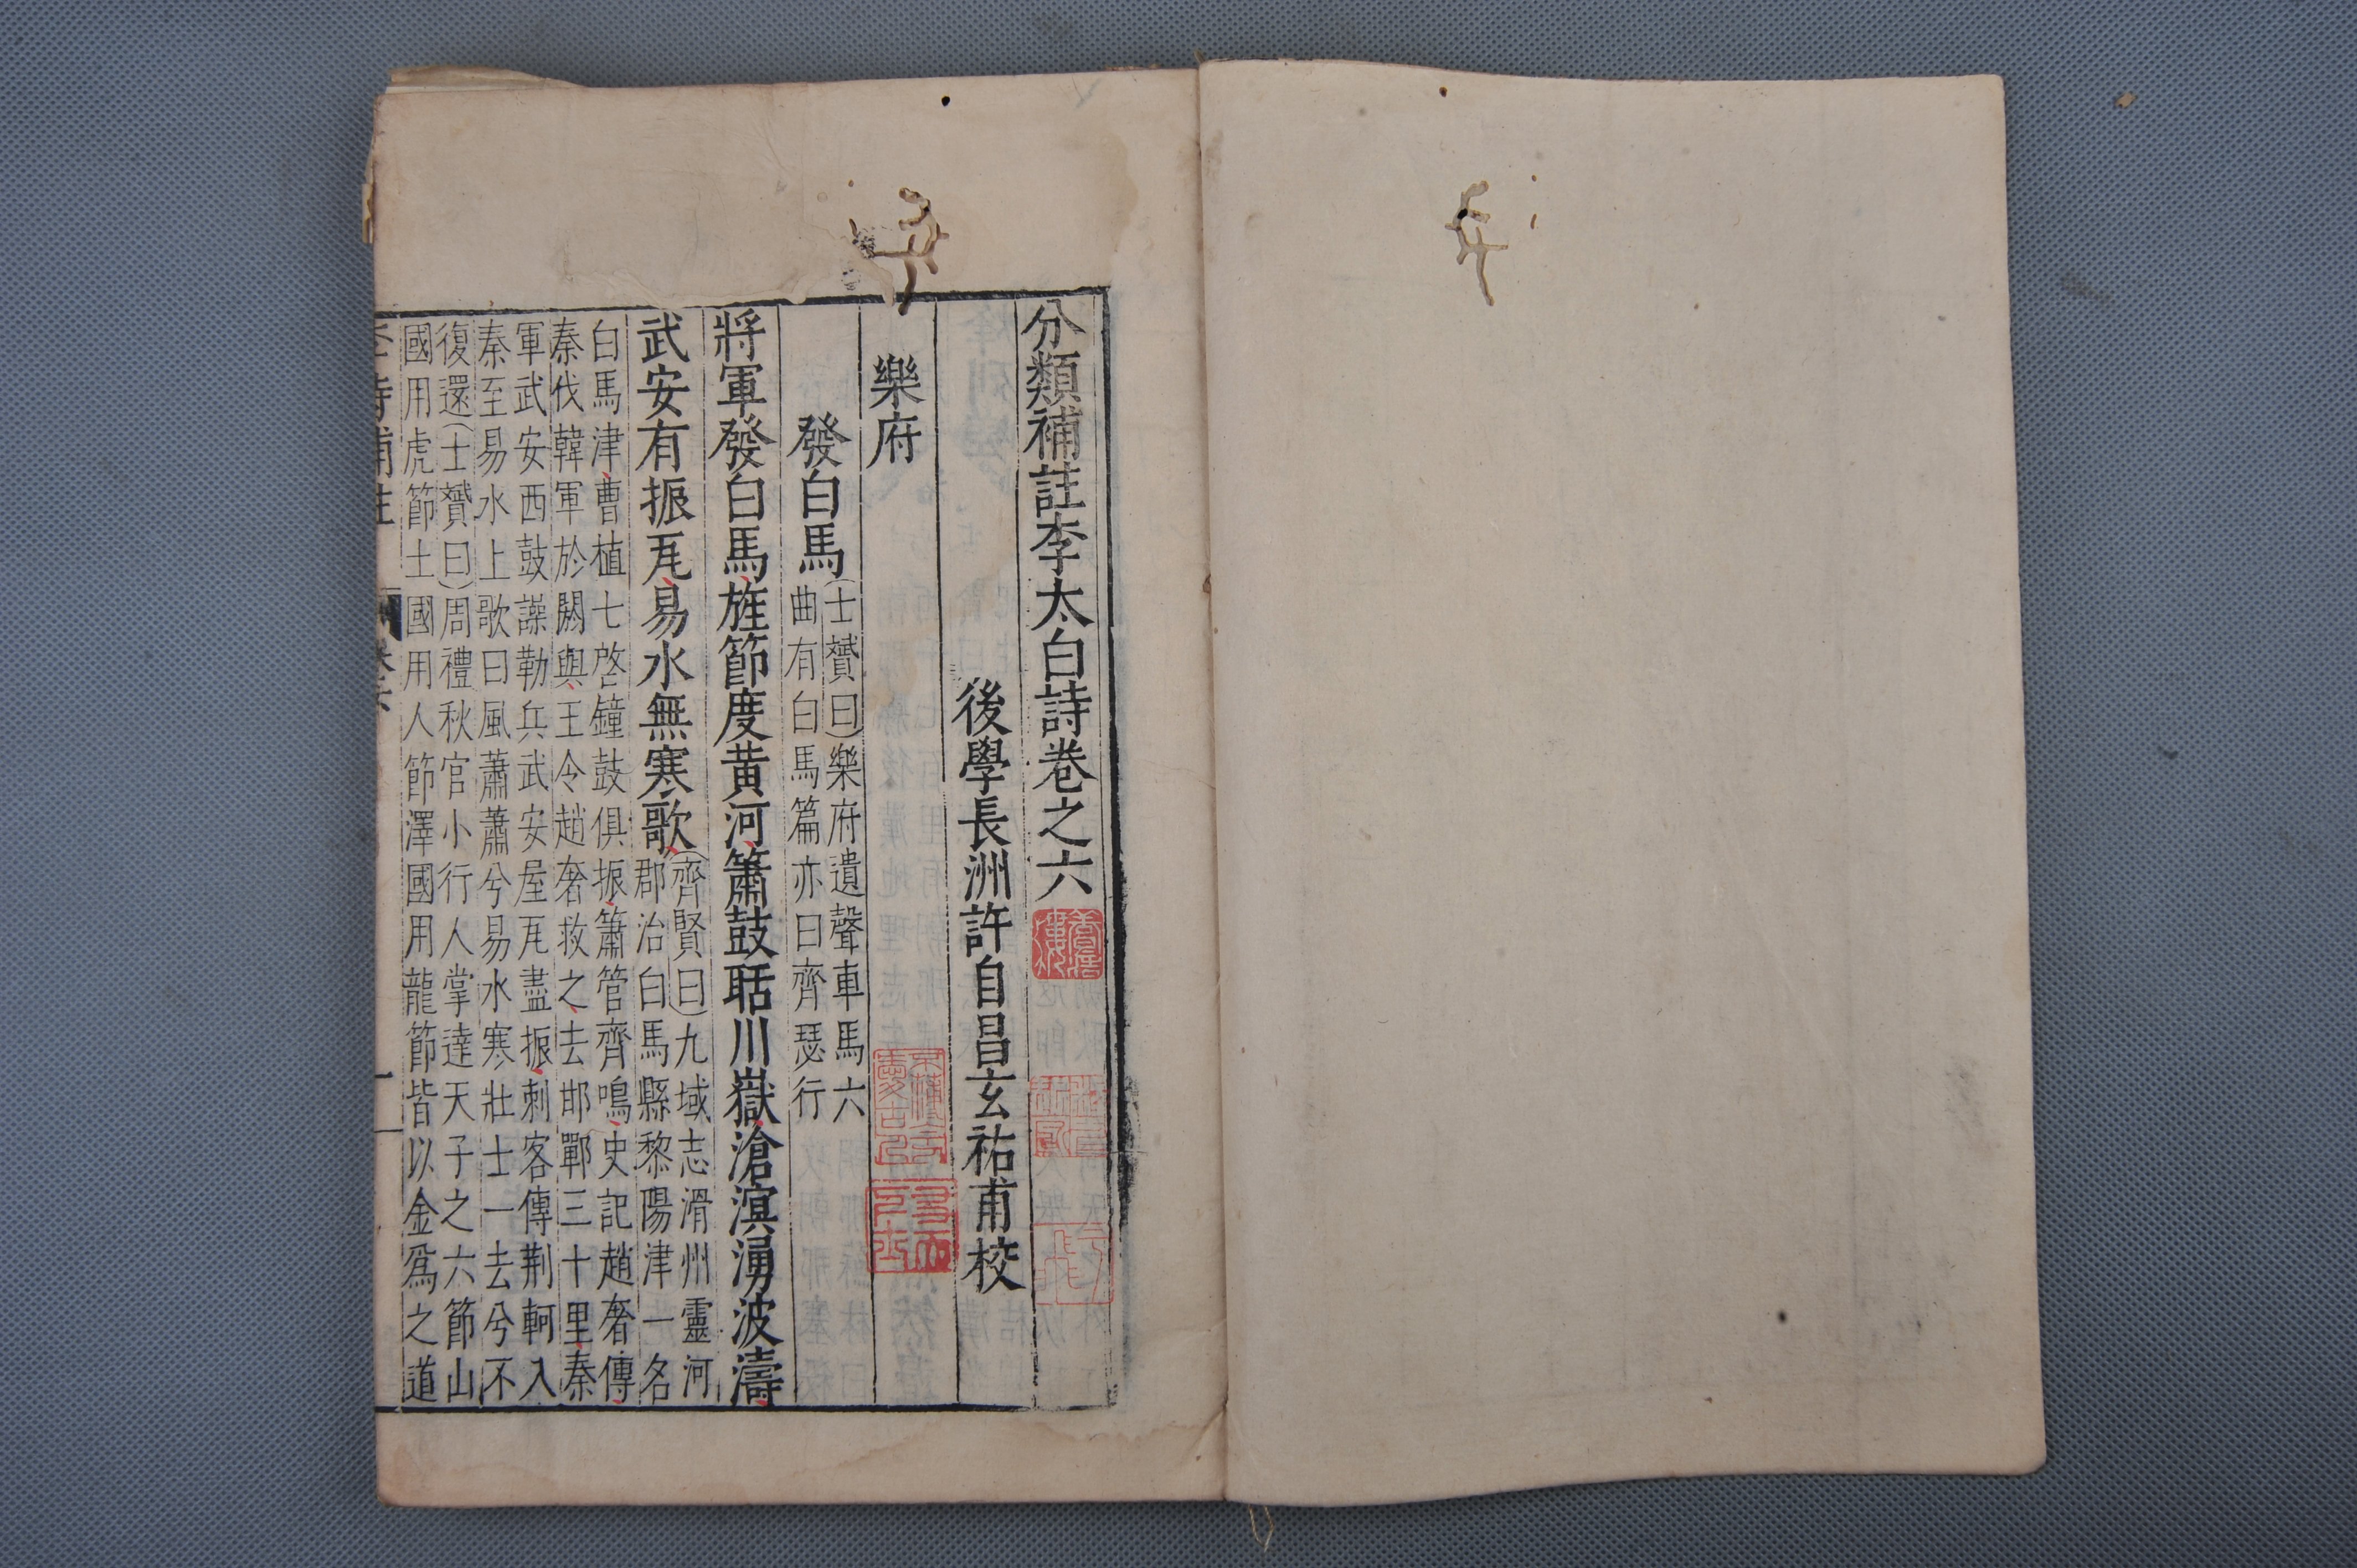 分類補註李太白詩卷之六
後學長洲許自昌玄祐甫校
樂府
發白馬
(士贇曰)樂府遺聲車馬六
曲有白馬篇亦曰齊瑟行
將軍發白馬旌節度黄河簫鼓聒川嶽滄溟湧波濤
武安有振瓦易水無寒歌
(齊賢曰)九域志滑州靈河
郡治白馬縣黎陽津一名
白馬津曹植七啓鐘鼓俱振簫管齊鳴史記趙奢傳
秦伐韓軍於閼與王令趙奢救之去邯鄲三十里秦
軍武安西鼓譟勒兵武安屋瓦盡振刺客傳荆軻入
秦至易水上歌曰風蕭蕭兮易水寒壯士一去兮不
復還(士贇曰)周禮秋官小行人掌達天子之六節山
國用虎節土國用人節澤國用龍節皆以金爲之道